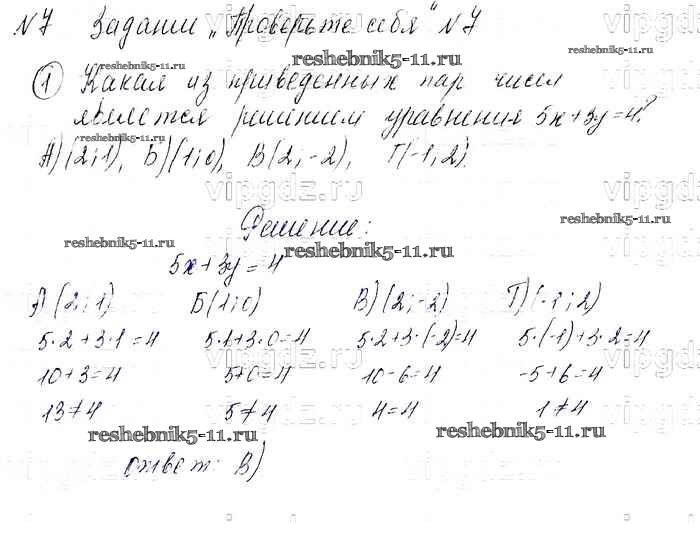 №7 Задании „Проверьте себя" №7
① Какая из приведенных пар чисел
является решением уравнения 5x+3y=4?
А) (2;1), Б) (1;0), В(2;-2), Г(-1;2).
Решение:
5x+3y=4
А) (2;1) Б(1;0) В) (2;-2) Г) (-1;2)
5·2+3·1=4 5·1+3·0=4 5·2+3·(-2)=4 5·(-1)+3·2=4
10+3=4 5+0=4 10-6=4 -5+6=4
13≠4 5≠4 4=4 1≠4
ответ: В)
reshebnik5-11.ru
reshebnik5-11.ru
reshebnik5-11.ru
reshebnik5-11.ru
reshebnik5-11.ru
reshebnik5-11.ru
reshebnik5-11.ru
reshebnik5-11.ru
vipgdz.ru
vipgdz.ru
vipgdz.ru
vipgdz.ru